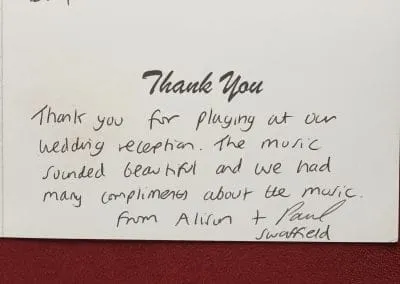 Thank You
Thank you for playing at our
wedding reception. The music
sounded beautiful and we had
many compliments about the music.
From Alison + Paul
Swaffield